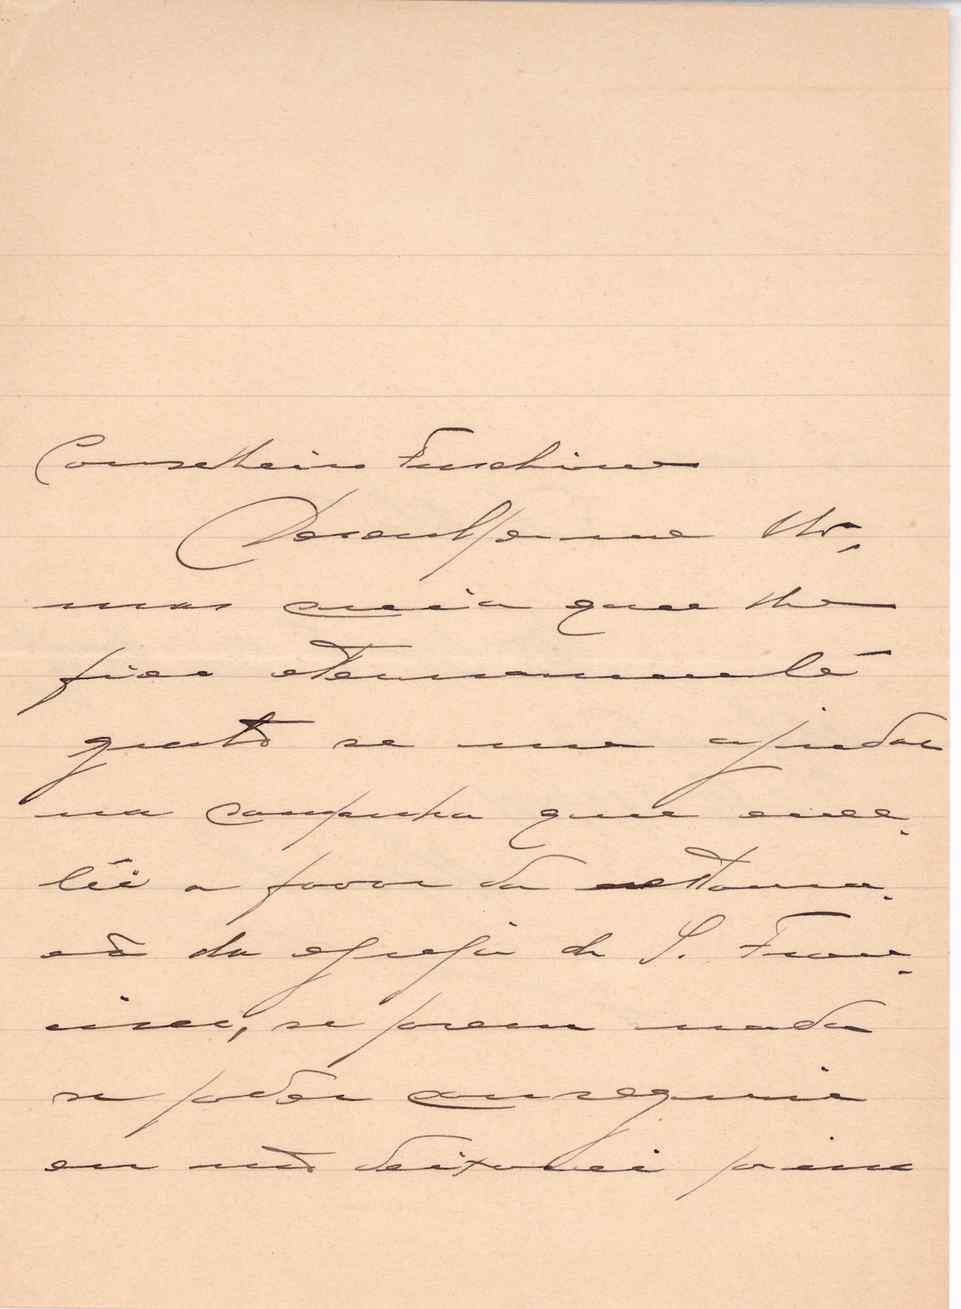 Conselheiro Fuschini
Desculpe-me
mas creia que lhe
fico eternamente
grato se me ajudar
na campanha que
a favor da restaura-
ção da egreja de S. Fran-
cisco, se porem nada
se poder conseguir
eu não deixarei